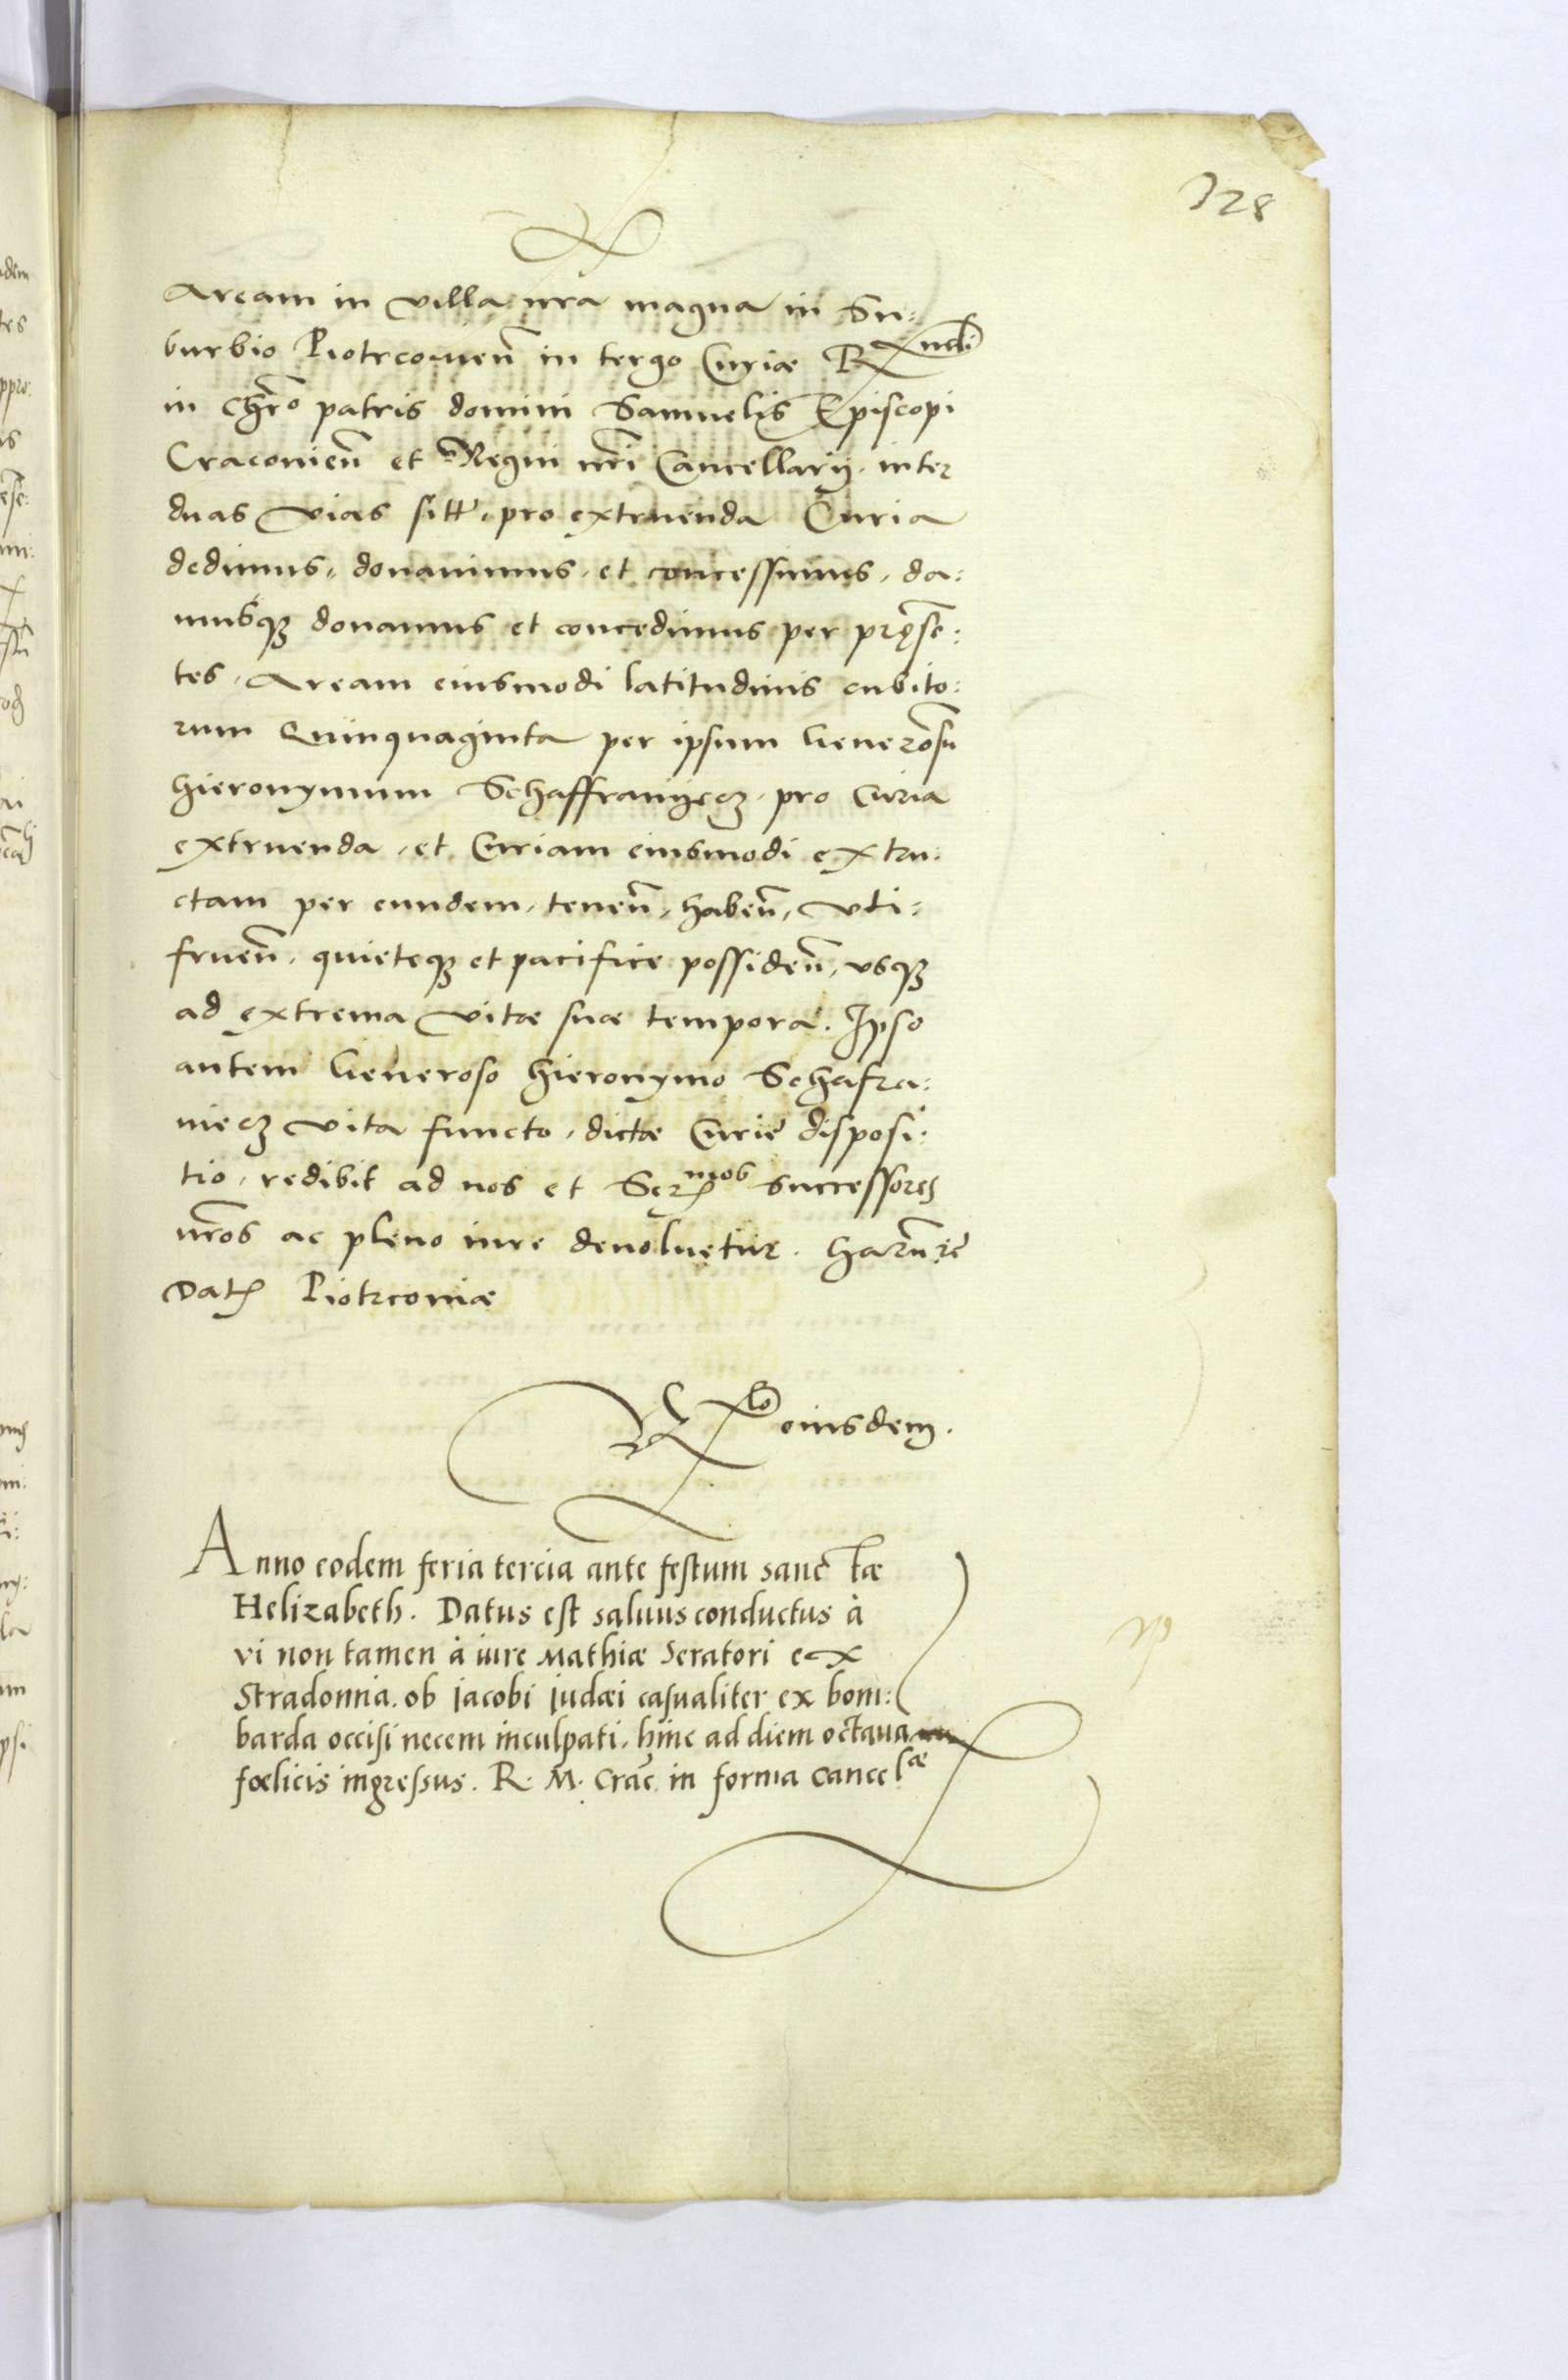 328
Aream in villa nra magna in Su:
burbio Piotrcovien̄ in tergo Curiæ R^ndi
in Chr̄o patris domini Samuelis Episcopi
Cracovien̄ et Regni nr̄i Cancellarij. inter
duas vias sitt. pro extruenda Curia
dedimus, donavimus, et concessimus, da:
musq₃ donamus et concedimus per pręsen̄:
tes, Aream eiusmodi latitudinis cubito:
rum Quinquaginta per ipsum Generosū
Hieronymum Schaffranyecz. pro Curia
extruenda, et Curiam eiusmodi extru:
ctam per eundem, tenen̄, haben̄, vti:
fruen̄, quieteq₃ et pacifice possiden̄, vsq₃
ad extrema vitæ suæ tempora. Ipso
autem Generoso Hieronymo Schafra:
niecz vita functo, dictæ Curiæ disposi:
tio, redibit ad nos et Ser^mos successores
nr̄os ac pleno iure devoluetur. Harū rē
Dat Piotrcoviæ
R^lo eiusdem.
Anno eodem feria tercia ante festum sanctæ
Helizabeth. Datus est saluus conductus à
vi non tamen à iure Mathiæ Seratori ex
Stradomia. ob Jacobi judæi casualiter ex bom:
barda occisi necem inculpati. hinc ad diem octaua
fœlicis ingressus. R. M. Crac̄. in forma Cancel^æ